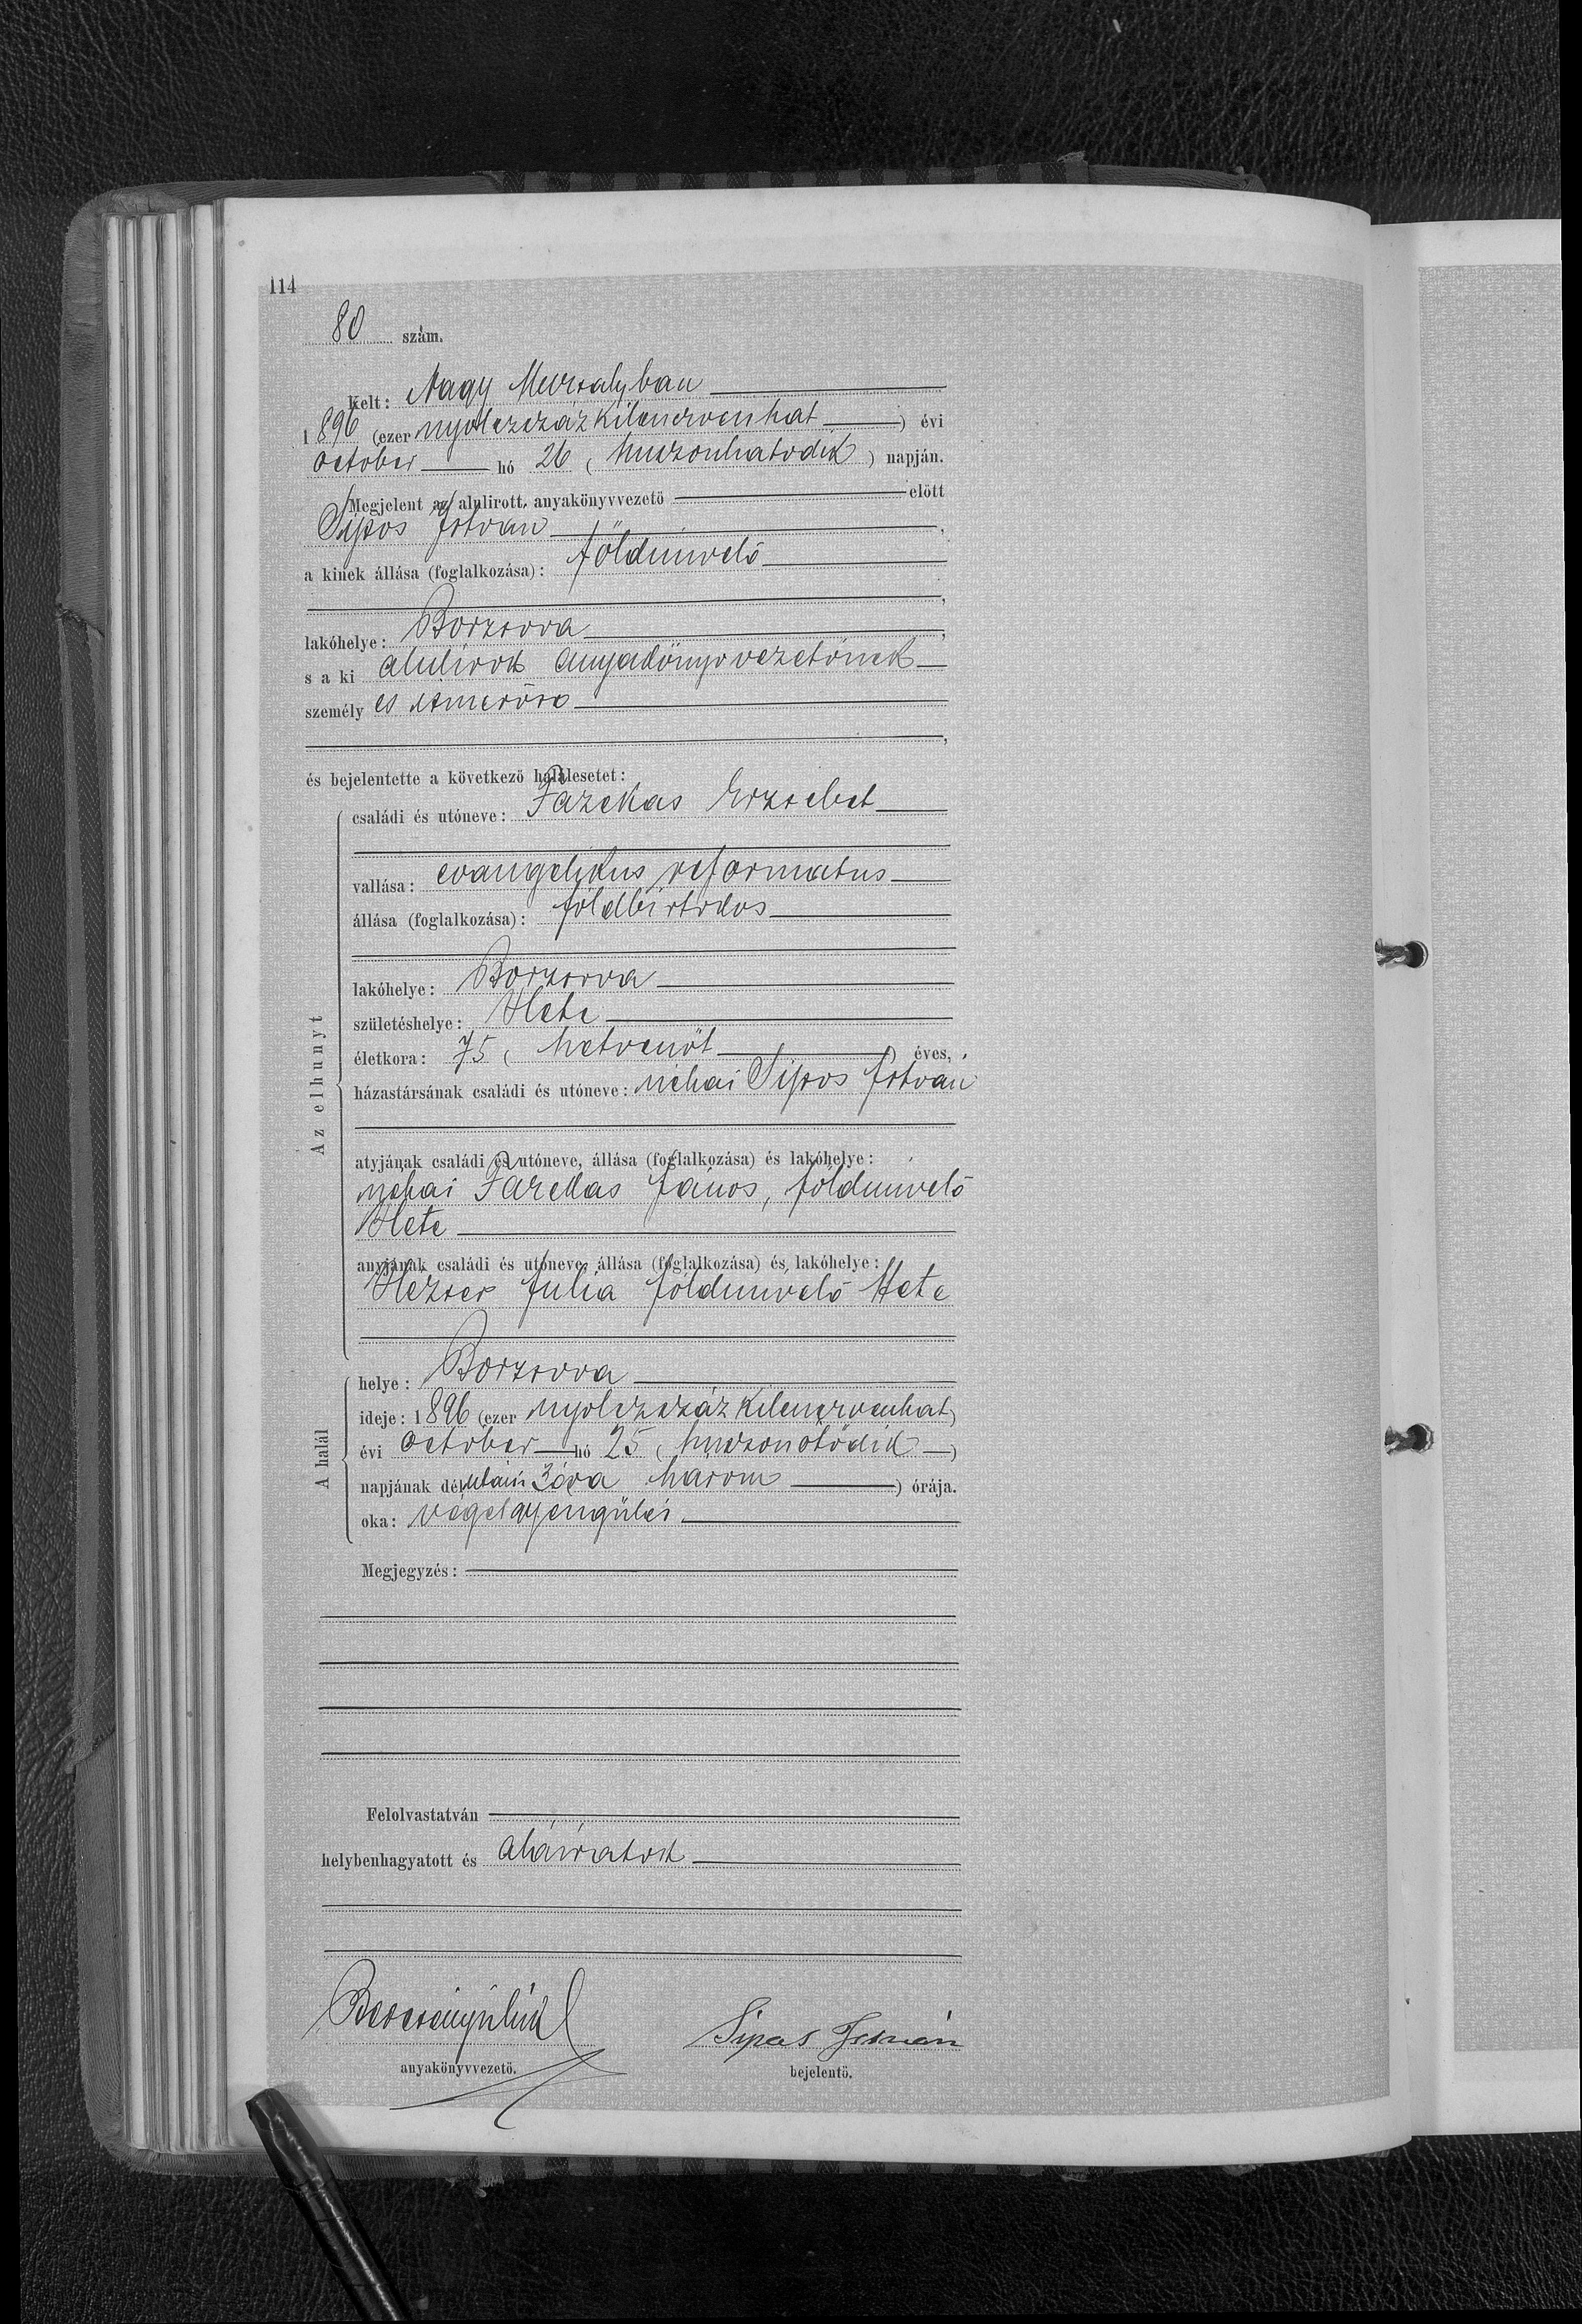 114
80 szám.
Kelt: Nagy Muzsalyban
1896 (ezer nyolczszáz kilenczvenhat) évi
october hó 26 (huszonhatodik) napján.
Megjelent az alulirott anyakönyvvezető előtt
Sipos István,
a kinek állása (foglalkozása): földmivelő
lakóhelye: Borzsova,
s a ki alulirott anyakönyvvezetőnek
személy es ismerőse
és bejelentette a következő halálesetet:
Az elhunyt
családi és utóneve: Fazekas Erzsebet
vallása: evangelikus reformatus
állása (foglalkozása): földbirtokos
lakóhelye: Borzsova
születéshelye: Hete
életkora: 75 (hetvenöt) éves,
házastársának családi és utóneve: néhai Sipos István
atyjának családi és utóneve, állása (foglalkozása) és lakóhelye:
néhai Fazekas János, földmivelő
Hete
anyjának családi és utóneve, állása (foglalkozása) és lakóhelye:
Julia földmivelő Hete
A halál
helye: Borzsova
ideje: 1896 (ezer nyolczszáz kilenczvenhat)
évi october hó 25 (huszonötödik)
napjának délutáni 3 óra három) órája.
oka: végelgyengülés
Megjegyzés:
Felolvastatván
helybenhagyatott és aláiratott
Sipos István
anyakönyvvezető.
bejelentő.